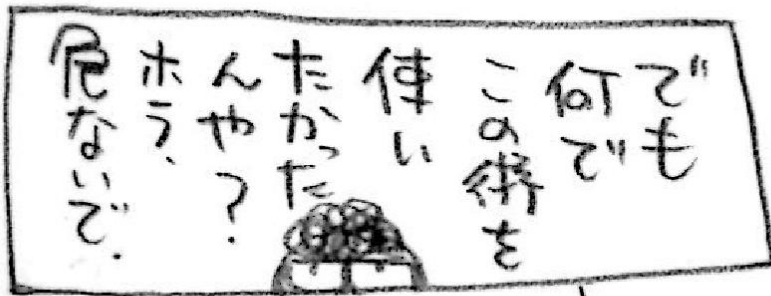 でも
何で
この術を
使い
たかった
んや？
ホラ、
危ないで.